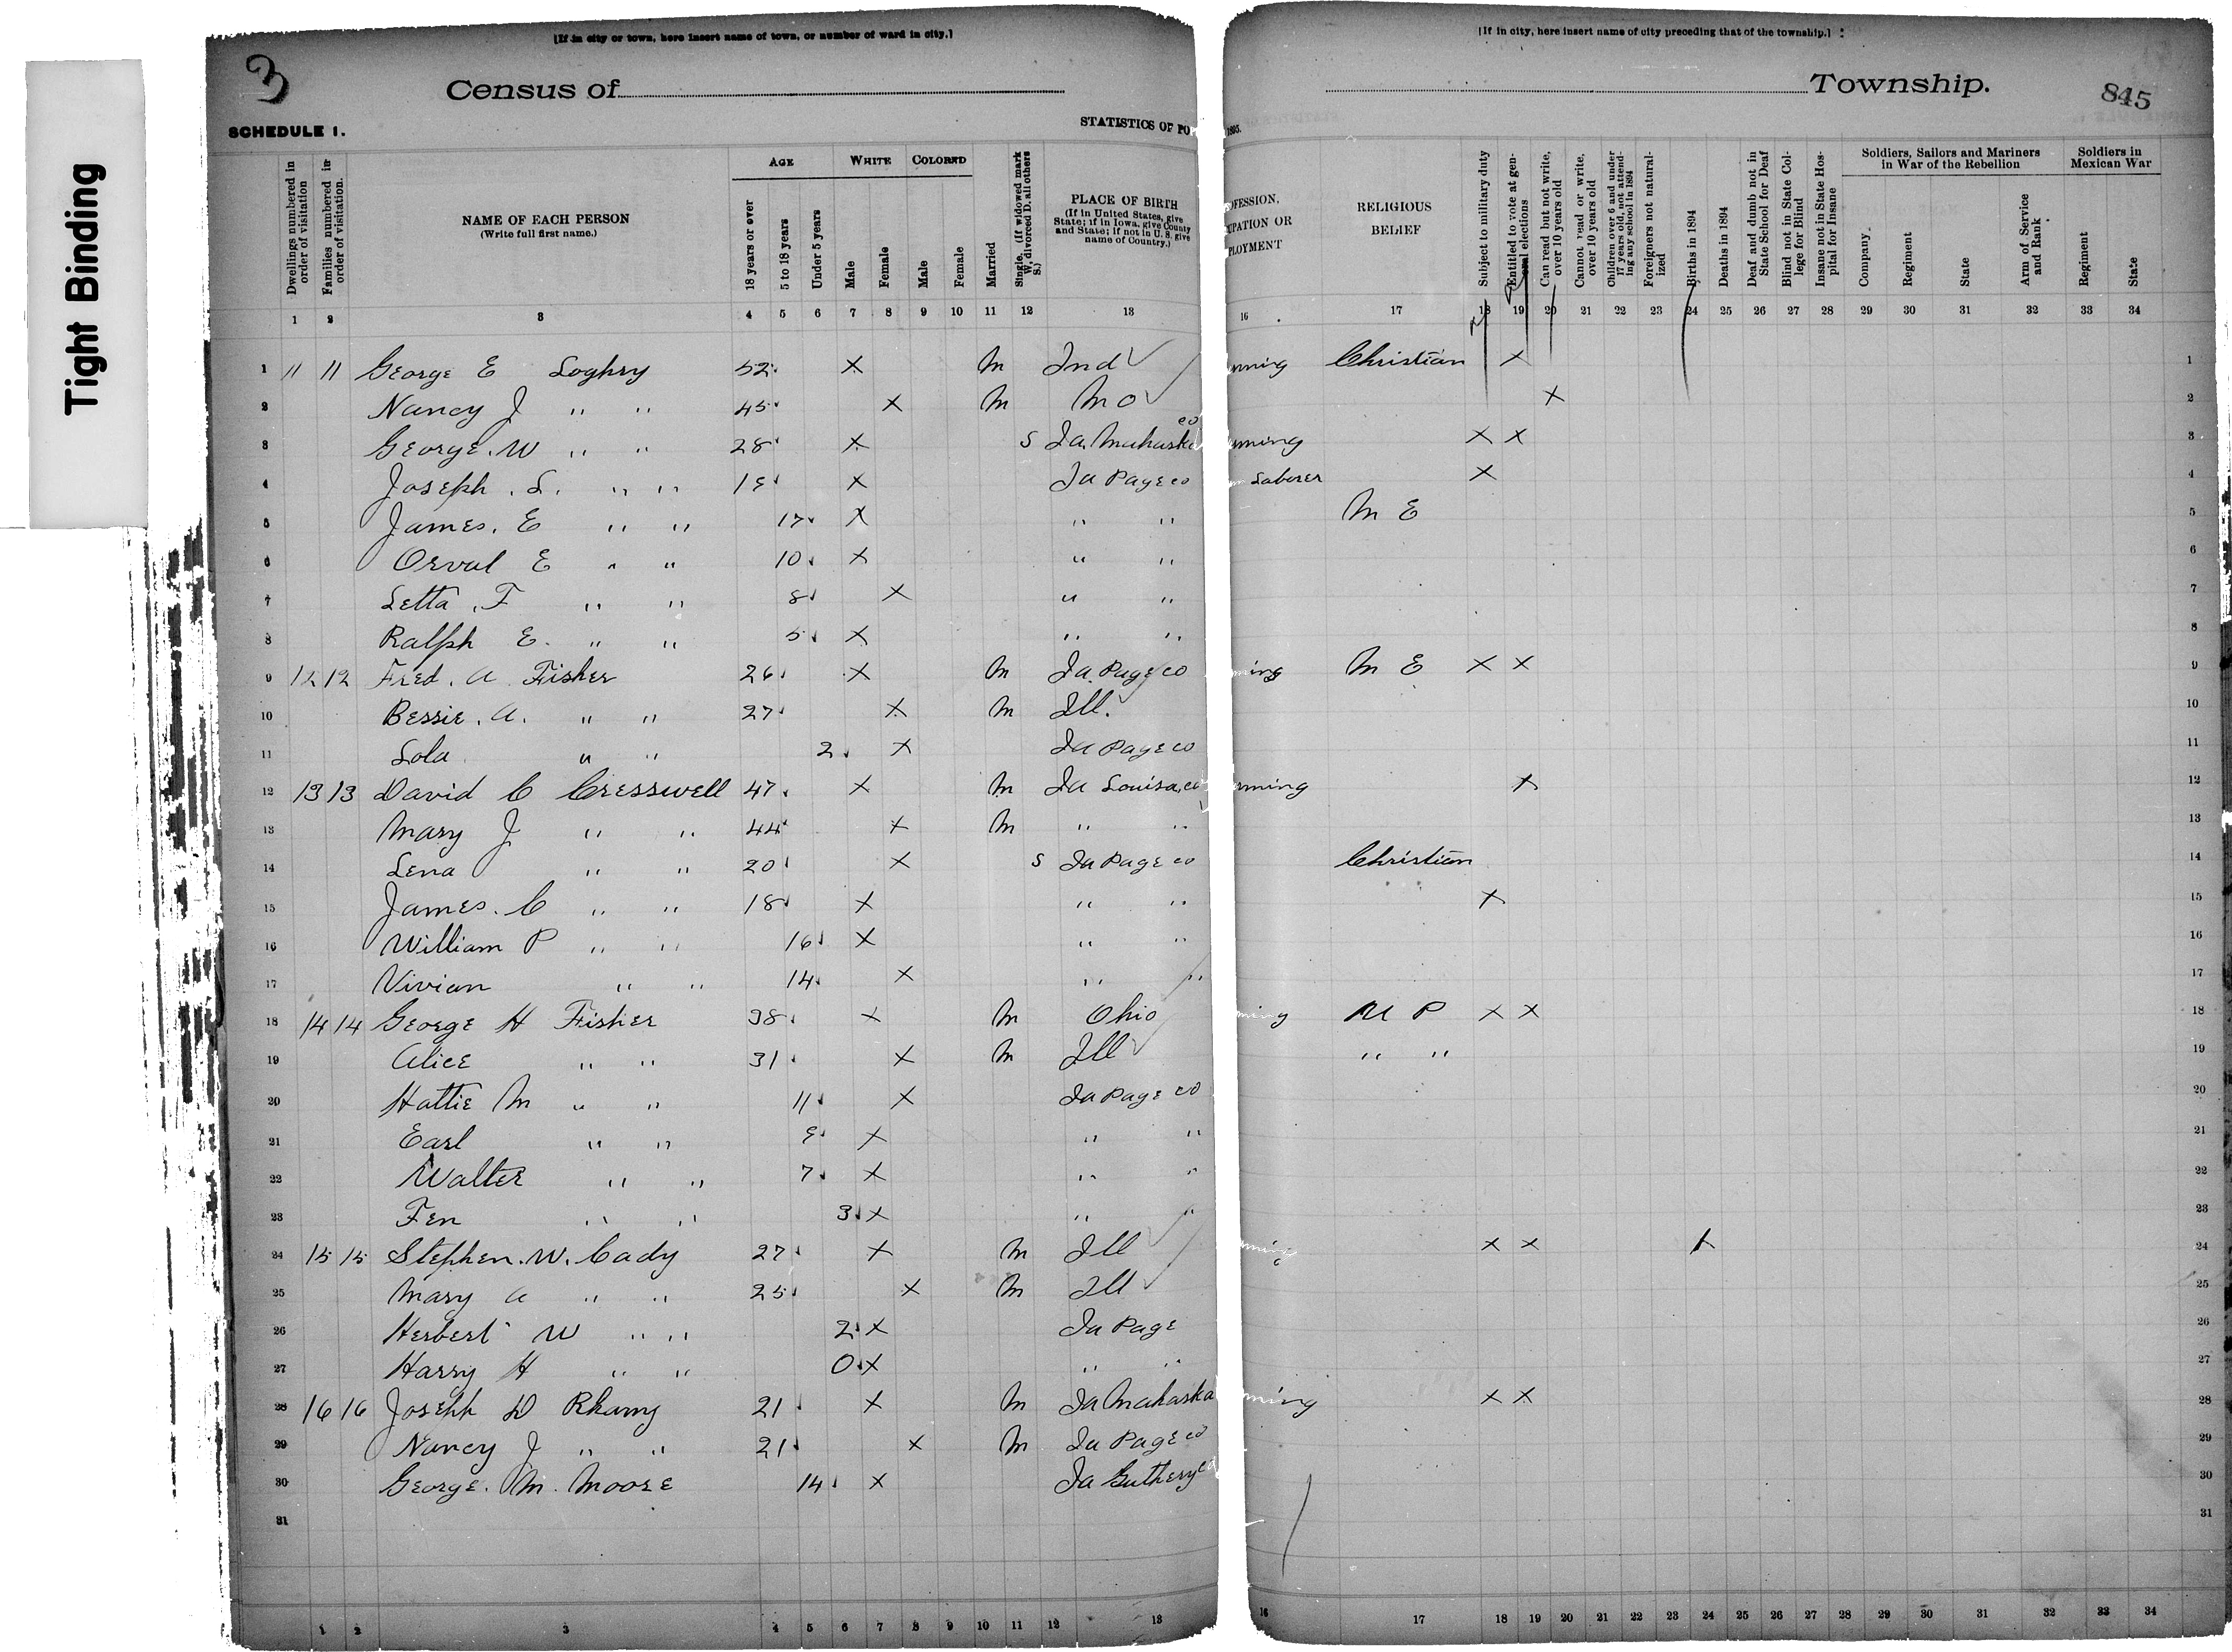 Tight Binding
3
[If in city or town, here insert name of town, or number of ward in city.]
[If in city, here insert name of city preceding that of the township.]
Census of
Township.
845
SCHEDULE 1.
STATISTICS OF PO
1895.
Dwellings numbered in order of visitation
Families numbered in order of visitation.
NAME OF EACH PERSON
(Write full first name.)
AGE
18 years or over
5 to 18 years
Under 5 years
WHITE
Male
Female
COLORED
Male
Female
Married
Single, (If widowed mark W, divorced D, all others S.)
PLACE OF BIRTH
(If in United States, give State; if in Iowa, give County and State; if not in U. S. give name of Country.)
OFESSION,
UPATION OR
PLOYMENT
RELIGIOUS BELIEF
Subject to military duty
Entitled to vote at general elections
Can read but not write, over 10 years old
Cannot read or write, over 10 years old
Children over 6 and under 17 years old, not attending any school in 1894
Foreigners not naturalized
Births in 1894
Deaths in 1894
Deaf and dumb not in State School for Deaf
Blind not in State College for Blind
Insane not in State Hospital for Insane
Soldiers, Sailors and Mariners in War of the Rebellion
Company
Regiment
State
Arm of Service and Rank
Soldiers in Mexican War
Regiment
State
1 2 3 4 5 6 7 8 9 10 11 12 13 16 17 18 19 20 21 22 23 24 25 26 27 28 29 30 31 32 33 34
1 11 11 George E Loghry 52 X M Ind ming Christian X 1
2 Nancy J " " 45 X M Mo X 2
3 George. W " " 28 X S Ia. Mahaska co ming X X 3
4 Joseph. L. " " 19 X Ia Page co Laborer X 4
5 James. E " " 17 X " " M E 5
6 Orval E " " 10 X " " 6
7 Letta. F " " 8 X " " 7
8 Ralph E. " " 5 X " " 8
9 12 12 Fred. A Fisher 26 X M Ia Page co ming M E X X 9
10 Bessie. A. " " 27 X M Ill. 10
11 Lola " " 2 X Ia Page co 11
12 13 13 David C Cresswell 47 X M Ia Louisa co ming X 12
13 Mary J " " 44 X M " " 13
14 Lena " " 20 X S Ia Page co Christian 14
15 James. C " " 18 X " " X 15
16 William P " " 16 X " " 16
17 Vivian " " 14 X " " 17
18 14 14 George H Fisher 38 X M Ohio ming M P X X 18
19 Alice " " 31 X M Ill " " 19
20 Hattie M " " 11 X Ia Page co 20
21 Earl " " 9 X " " 21
22 Walter " " 7 X " " 22
23 Fen " " 3 X " " 23
24 15 15 Stephen. W. Cady 27 X M Ill ming X X X 24
25 Mary A " " 25 X M Ill 25
26 Herbert W " " 2 X Ia Page 26
27 Harry H " " 0 X " " 27
28 16 16 Joseph D Rhamy 21 X M Ia Mahaska ming X X 28
29 Nancy J " " 21 X M Ia Page co 29
30 George. M. Moore 14 X Ia Guthery co 30
31 31
1 2 3 4 5 6 7 8 9 10 11 12 13 16 17 18 19 20 21 22 23 24 25 26 27 28 29 30 31 32 33 34